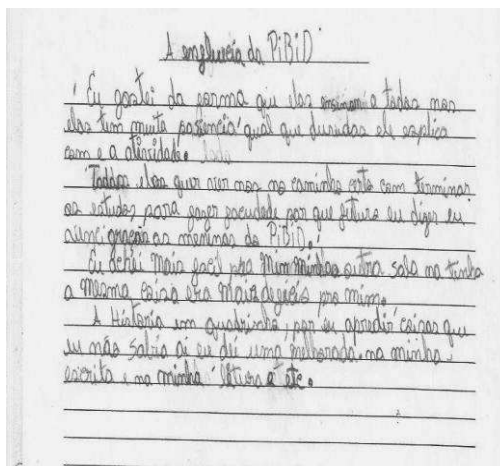 A engluecia da PiBiD
Eu gostei da forma qui elas ensinam a todas nos
elas tem muita pasiencia qual que duvidas ele esplica
com e a atividade.
Todas elas quer ver nos no caminho certo com terminar
os estudos para fazer faculdade por que futuro eu diger eu
graças as meninas do PiBiD.
Eu achei mais facil pra mim minha outra sala na tinha
a mesma coisa era mais dificis pro mim.
A Historia em quadrinho, por eu aprendir coisas que
eu não sabia ai eu die uma melhorada na minha
escrita e na minha leitura a etc.